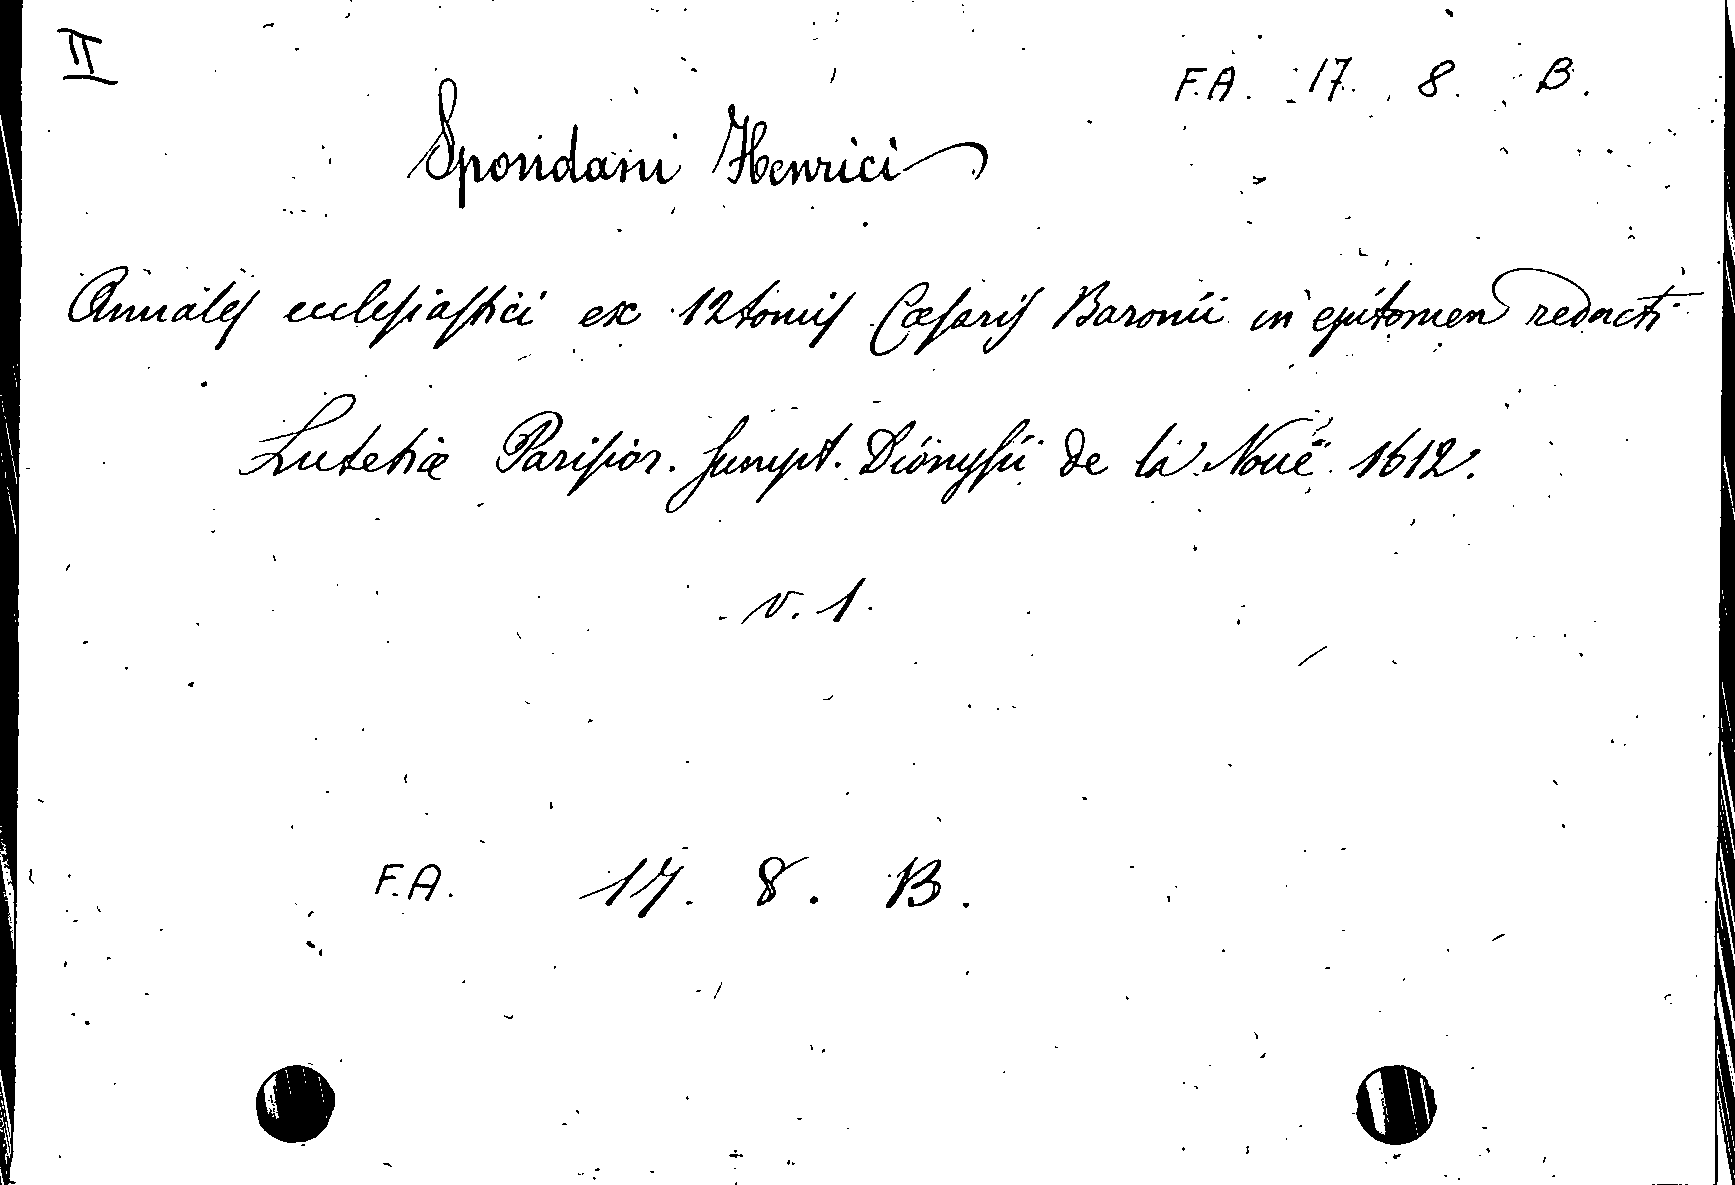 II
F.A. 17. 8. B.
Spondani Henrici
Annales ecclesiastici ex 12 tomis Cæsaris Baronii in epitomen redacti
Lutetiæ Parisior. sumpt. Dionysii de la Nouë 1612.
v. 1.
F.A. 17. 8. B.